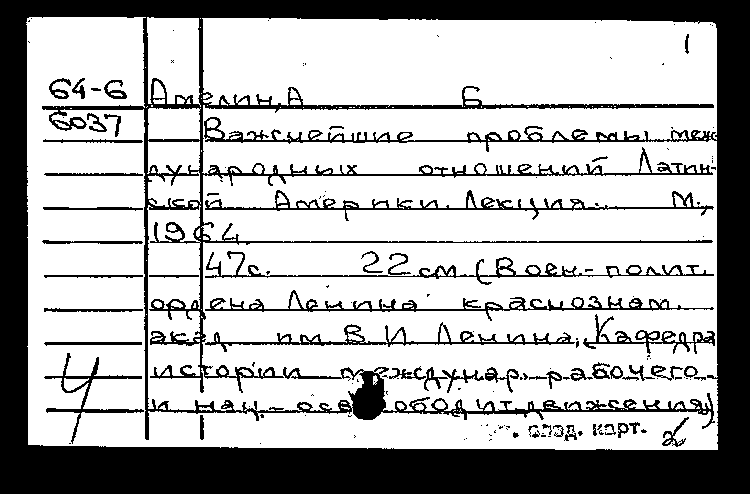 1
64-6 Амелин, А Б
6037 Важнейшие проблемы меж-
дународных отношений Латин-
ской Америки. Лекция. М.,
1964.
47с. 22 см (Воен.-полит.
ордена Ленина краснознам.
акад. им В.И. Ленина. Кафедра
истории междунар. рабочего
и нац.-освободит движения)
4
карт. 2